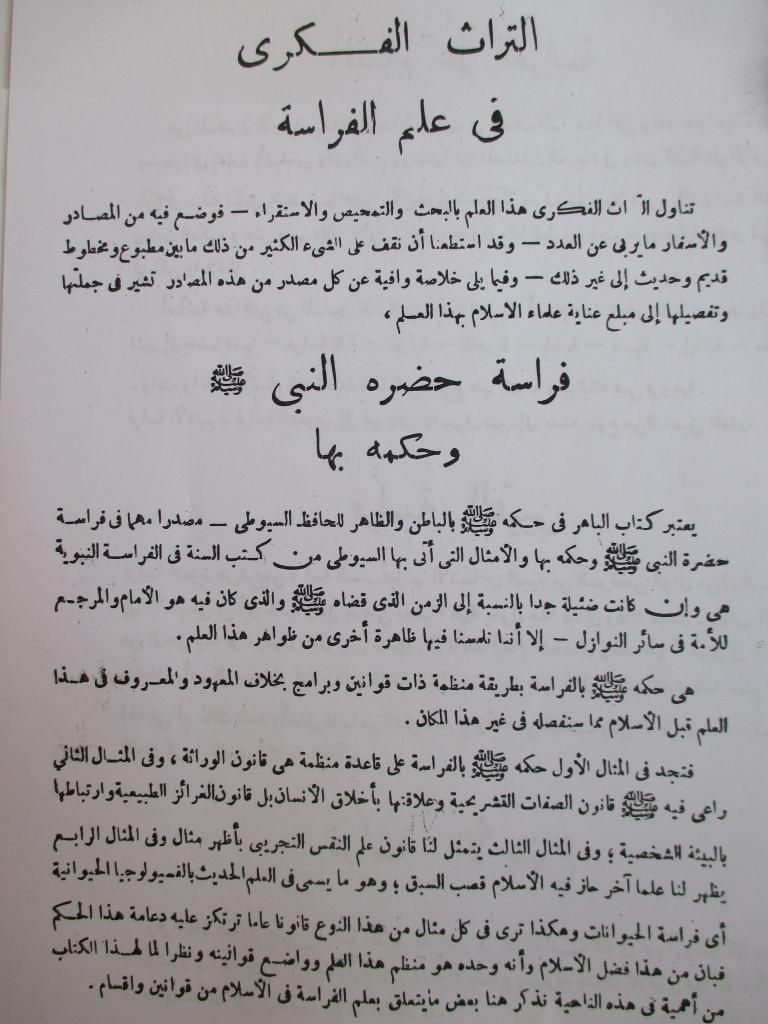 التراث الفكرى
فى علم الفراسة
تناول الـ اث الفكرى هذا العلم بالبحث والتمحيص والاستقراء — فوضع فيه من المصادر
والأسفار مايربى عن العدد — وقد استطعنا أن نقف على الشىء الكثير من ذلك ما بين مطبوع ومخطوط
قديم وحديث إلى غير ذلك — وفيما يلى خلاصة وافية عن كل مصدر من هذه المصادر تشير فى جملتها
وتفصيلها إلى مبلغ عناية علماء الاسلام بهذا العـلم ،
فراسة حضره النبي ﷺ
وحكمه بها
يعتبر كتاب الباهر فى حـكمه ﷺ بالباطن والظاهر للحافظ السيوطى — مصدرا مهما فى فراسة
حضرة النبي ﷺ وحكمه بها والأمثال التى أتى بها السيوطى من كـتب السنة فى الفراسة النبوية
هى وإن كانت ضئيلة جدا بالنسبة إلى الزمن الذى قضاه ﷺ والذى كان فيه هو الأمام والمرجـع
للأمة فى سائر النوازل — إلا أننا نلمسنا فيها ظاهرة أخرى من ظواهر هذا العلم .
هى حكمه ﷺ بالفراسة بطريقة منظمة ذات قوانين وبرامج بخلاف المعهود والمعـروف فى هـذا
العلم قبل الأسلام مما سنفصله فى غير هذا المكان .
فتجد فى المثال الأول حكمه ﷺ بالفراسة على قاعدة منظمة هى قانون الوراثة ، وفى المثـال الثاني
راعى فيه ﷺ قانون الصفات التشريحية وعلاقتها بأخلاق الأنسان بل قانون الغرائز الطبيعية وارتباطها
بالبيئة الشخصية ؛ وفى المثال الثالث يتمثل لنا قانون علم النفس التجريبى بأظهر مثال وفى المثال الرابع
يظهر لنا علما آخر حاز فيه الأسلام قصب السبق ؛ وهو ما يسمى فى العلم الحديث بالفسيولوجيا الحيوانية
أى فراسة الحيوانات وهكذا ترى فى كل مثال من هذا النوع قانونا عاما ترتكز عليه دعامة هذا الحـكم
فبان من هذا فضل الأسلام وأنه وحده هو منظم هذا العلم وواضع قوانينه ونظرا لما لهـذا الكتاب
من أهمية فى هذه الناحية نذكر هنا بعض مايتعلق بعلم الفراسة فى الأسلام من قوانين واقسام .